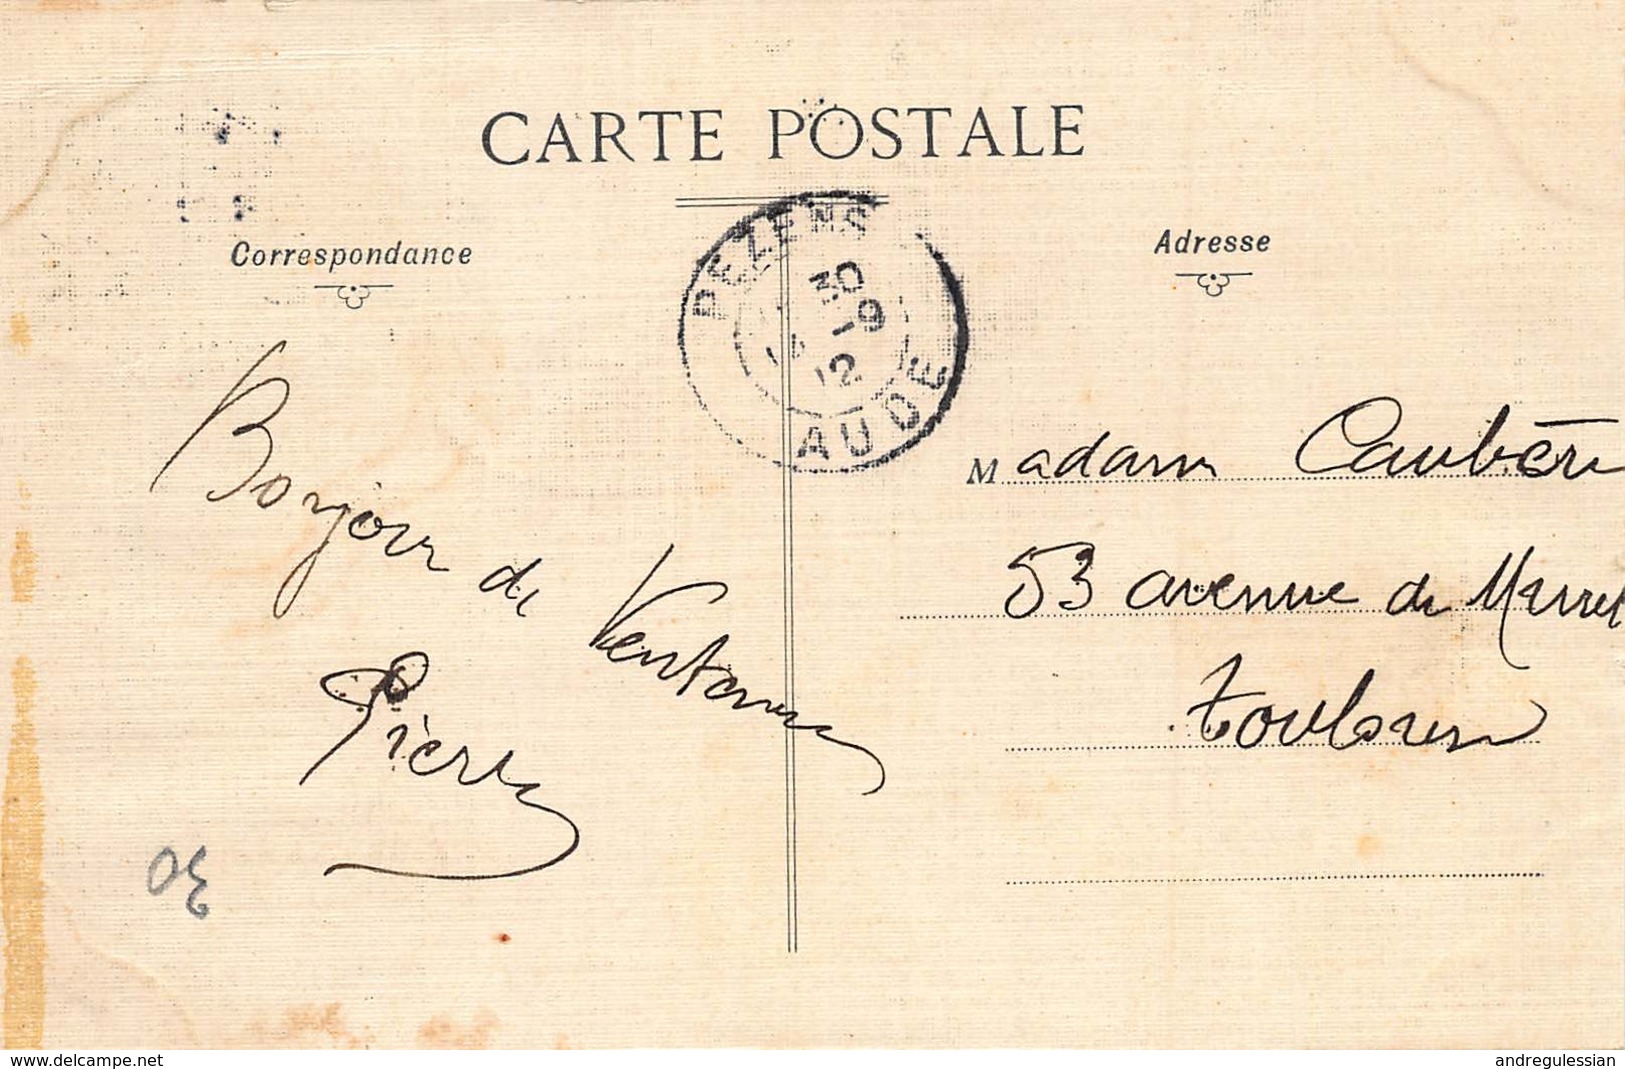 CARTE POSTALE
Correspondance
Adresse
PEZENS
30
1-9
12
AUDE
Bonjour de Ventenac
Pierre
30
Madame Caubère
53 avenue de Muret
Toulouse
www.delcampe.net
andregulessian